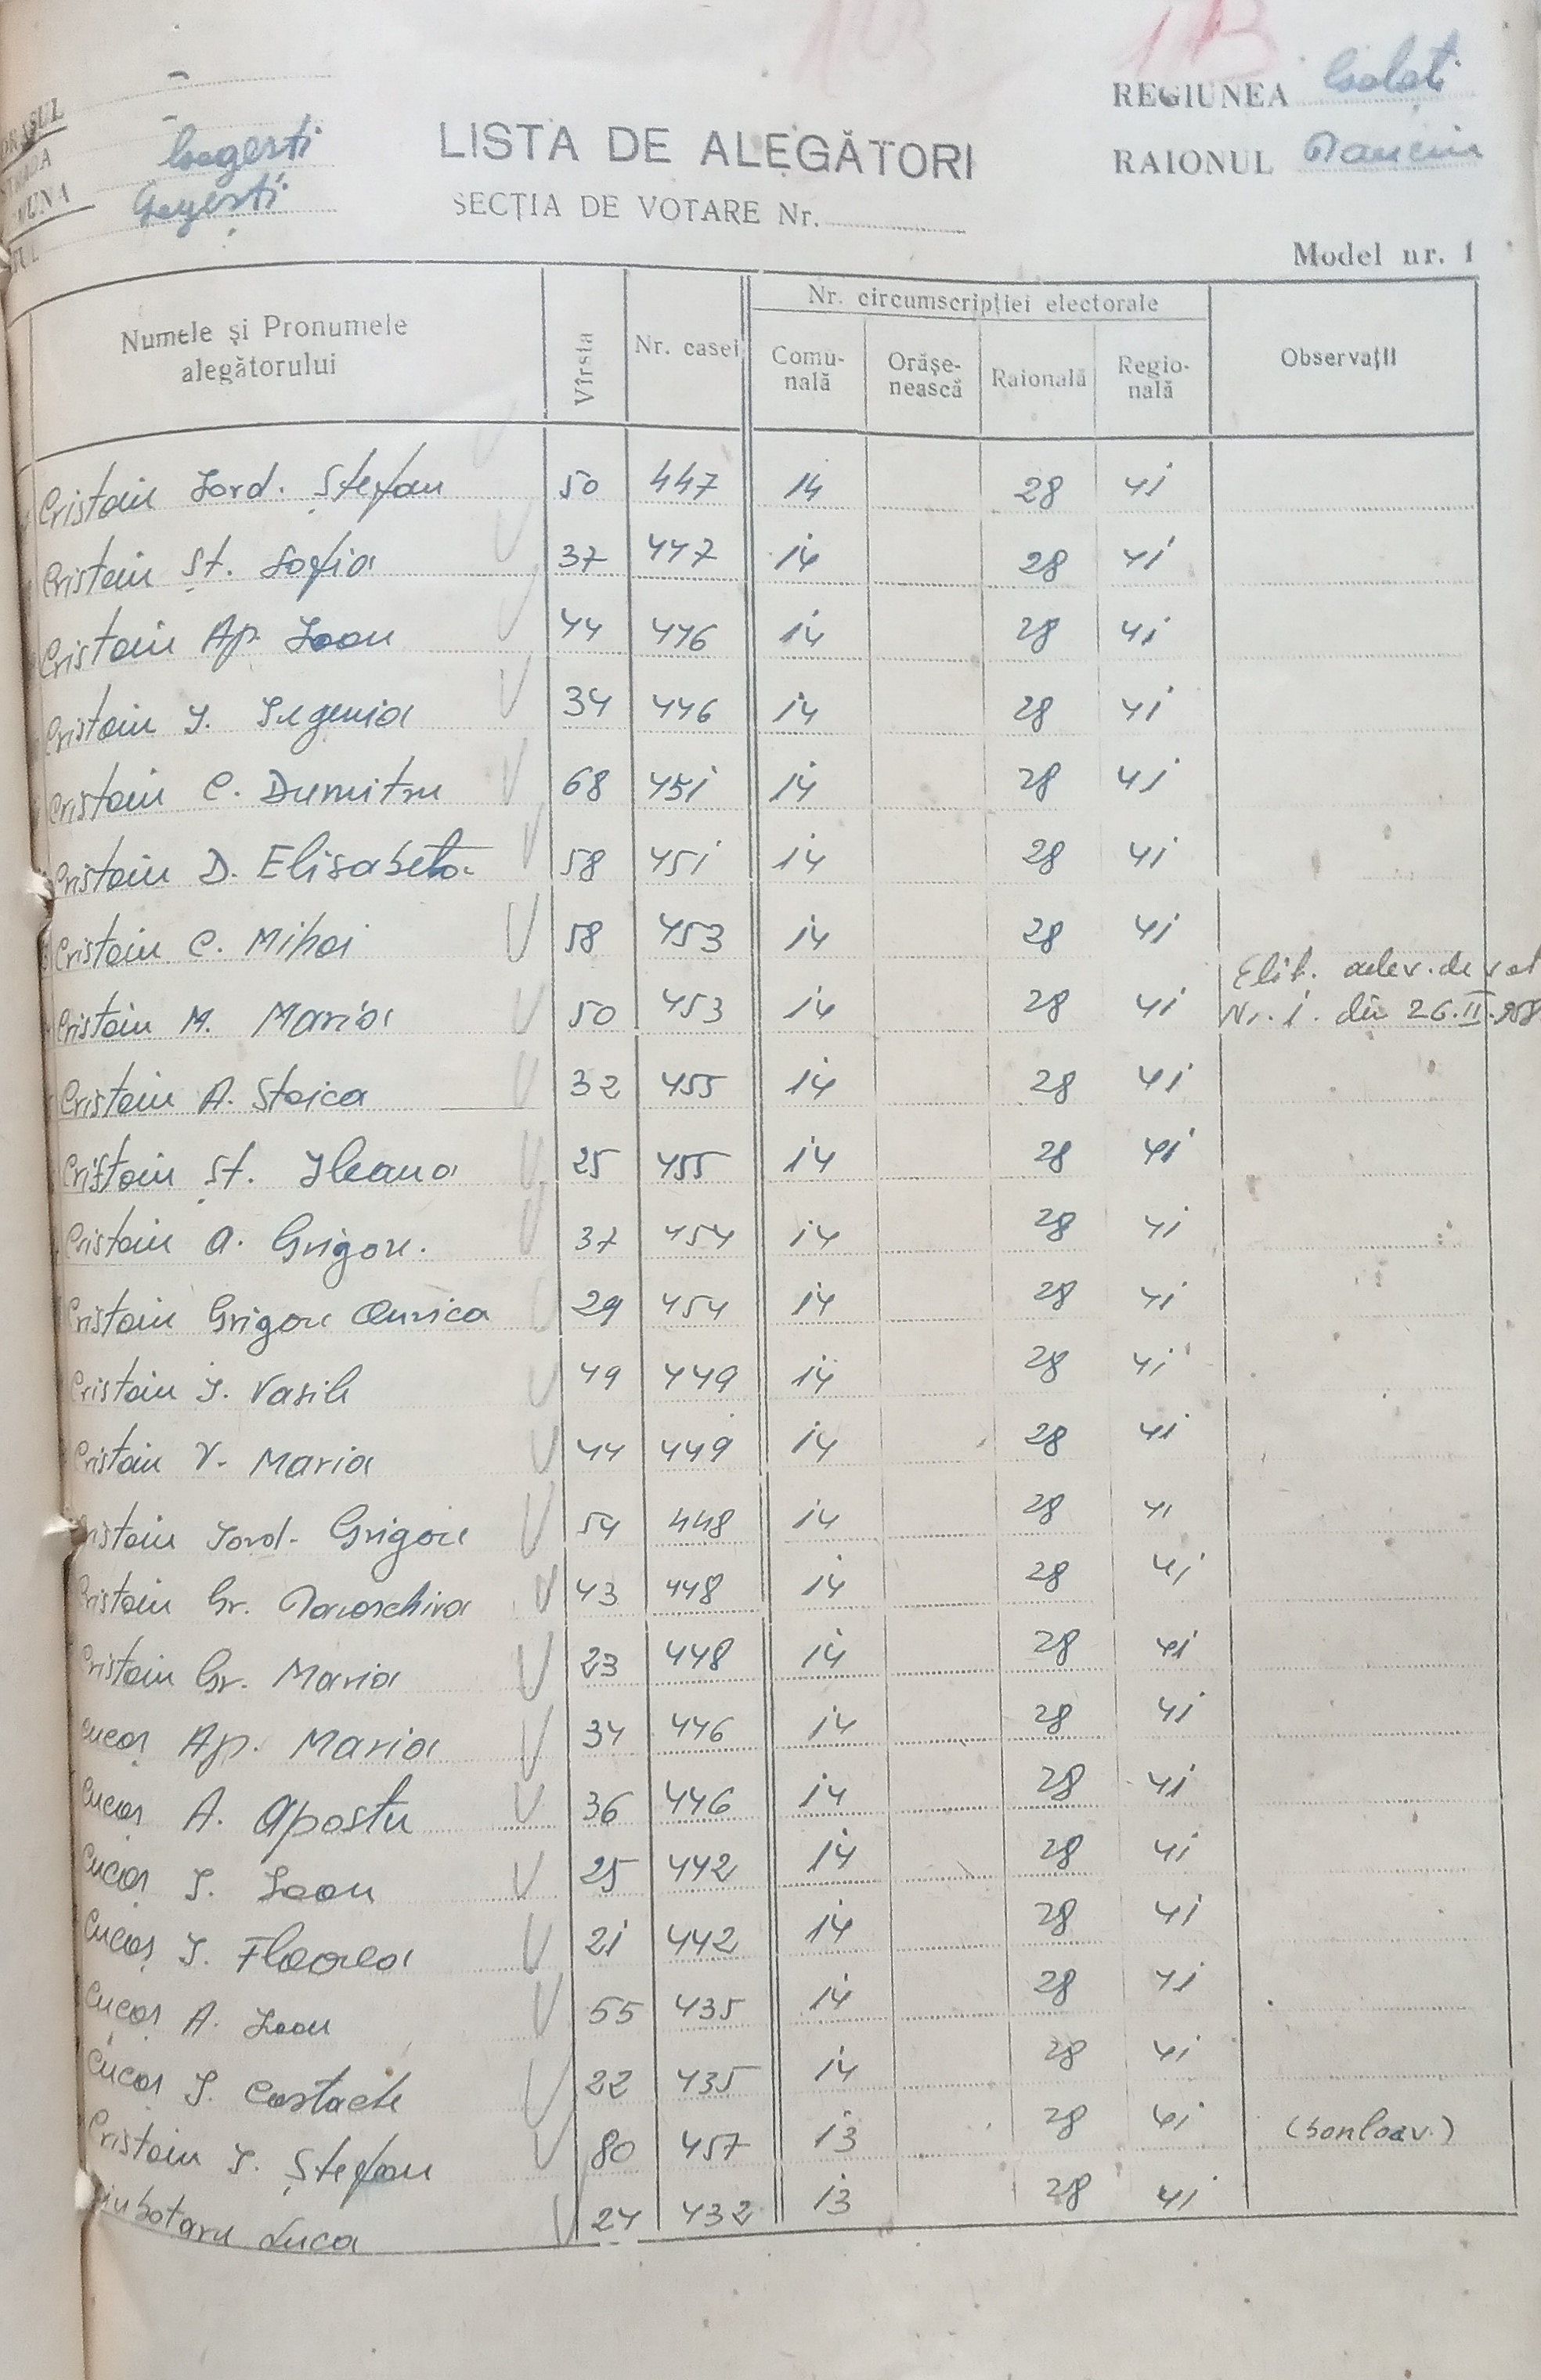 REGIUNEA Galați
LISTA DE ALEGĂTORI
RAIONUL
SECȚIA DE VOTARE Nr.
Gegești
Model nr. 1
Numele și Pronumele alegătorului
Vîrsta
Nr. casei
Nr. circumscripției electorale
Comu-nală
Orășe-nească
Raională
Regio-nală
Observații
Cristain Iord. Ștefan 50 447 14 28 41
Cristain Șt. Sofia 37 447 14 28 41
Cristain Ap. Ioan 44 446 14 28 41
Cristain I. Iugenia 34 446 14 28 41
Cristain C. Dumitru 68 451 14 28 41
Cristain D. Elisabeta 58 451 14 28 41
Cristain C. Mihai 58 453 14 28 41
Cristain M. Maria 50 453 14 28 41 Elib. adev. de vot Nr. 1. din 26.II.958
Cristain A. Stoica 32 455 14 28 41
Cristain Șt. Ileana 25 455 14 28 41
Cristain A. Grigore 37 454 14 28 41
Cristain Grigore 29 454 14 28 41
Cristain I. Vasile 49 449 14 28 41
Cristain V. Maria 44 449 14 28 41
Cristain Iord. Grigore 54 448 14 28 41
Cristain Gr. 43 448 14 28 41
Cristain Gr. Maria 23 448 14 28 41
Cucoș Ap. Maria 34 446 14 28 41
Cucoș A. Apostu 36 446 14 28 41
Cucoș I. Ioan 25 442 14 28 41
Cucoș I. Floarea 21 442 14 28 41
Cucoș A. Ioan 55 435 14 28 41
Cucoș I. Costache 22 435 14 28 41
Cristain I. Ștefan 80 457 13 28 41
Luca 24 432 13 28 41